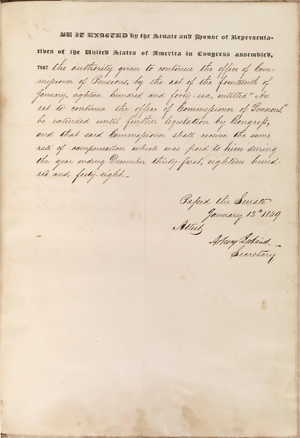 BE IT ENACTED by the Senate and House of Representa-
tives of the United States of America in Congress assembled,
THAT the authority given to continue the office of Com-
missioner of Pensions, by the act of the fourteenth of
January, eighteen hundred and forty-six, entitled "An
act to continue the office of Commissioner of Pensions"
be extended until further legislation by Congress;
and that said Commissioner shall receive the same
rate of compensation which was paid to him during
the year ending December thirty first, eighteen hund-
red and forty-eight.-
Passed the Senate
January 15th 1849
Attest,
Asbury Dickins
Secretary